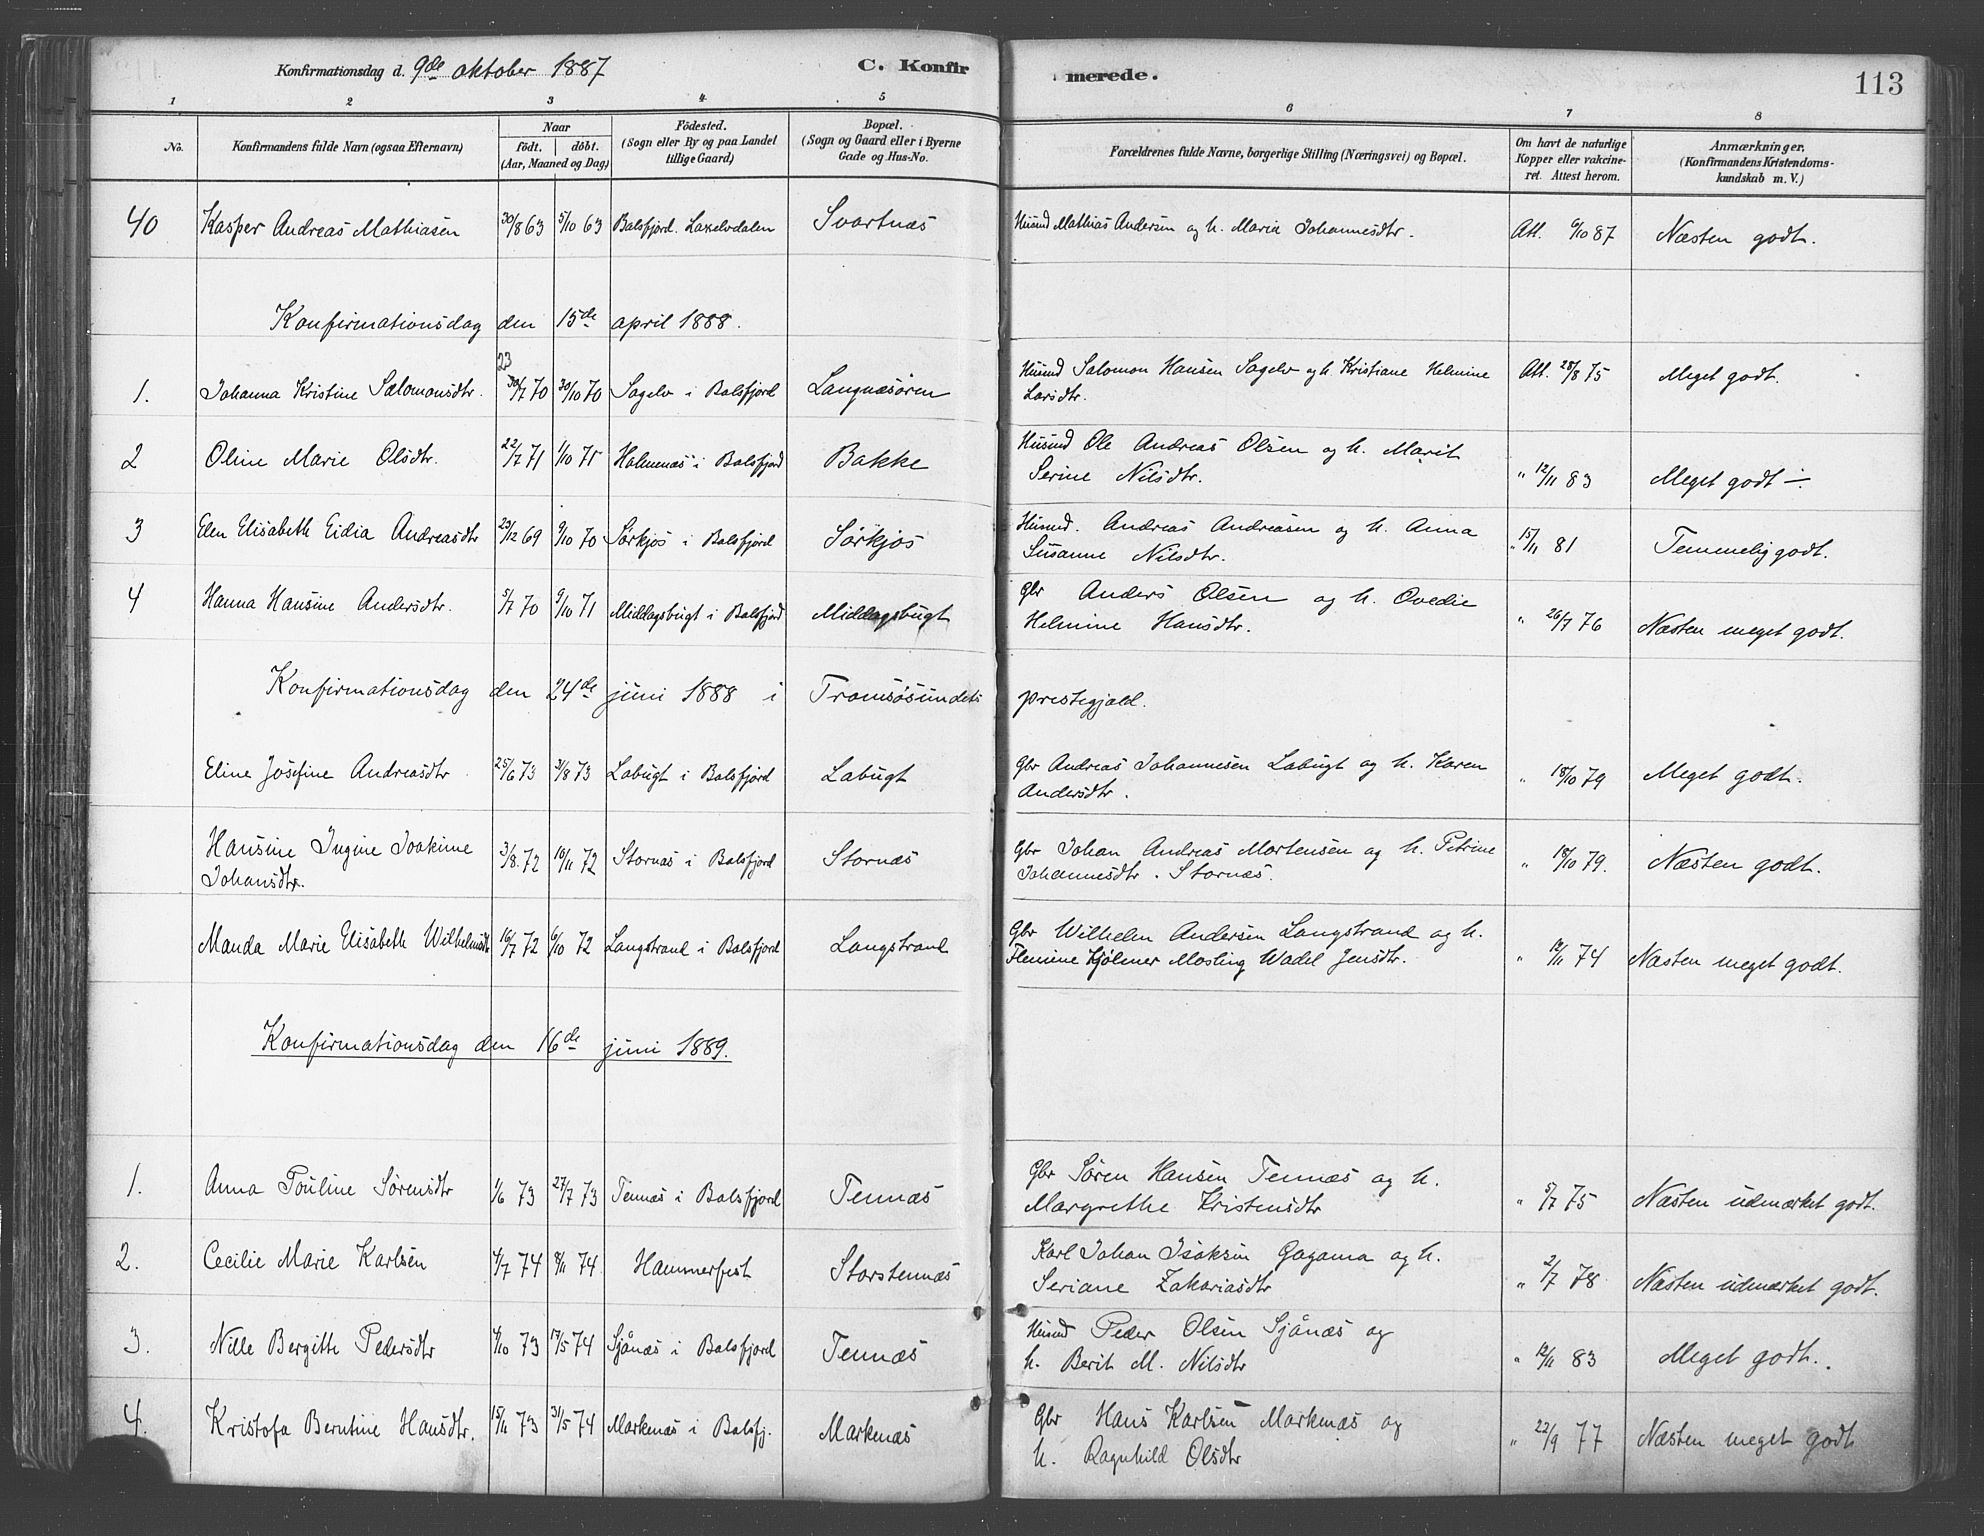 Konfirmationsdag d. 9de oktober 1887 C. Konfir merede. 113
1 2 3 4 5 6 7 8
No. Konfirmandens fulde Navn (ogsaa Efternavn) Naar født. døbt. (Aar, Maaned og Dag) Fødested. (Sogn eller By og paa Landet tillige Gaard) Bopæl. (Sogn og Gaard eller i Byerne Gade og Hus-No. Forældrenes fulde Navne, borgerlige Stilling (Næringsvei) og Bopæl. Om havt de naturlige Kopper eller vakcineret. Attest herom. Anmærkninger, (Konfirmandens Kristendomskundskab m. V.)
40 Kasper Andreas Mathiasen 30/8 63 5/10 63 Balsfjord. Lakelvdalen Svartnæs Husmd Mathias Andersen og h. Maria Johannesdtr. Att. 6/10 87 Næsten godt.
Konfirmationsdag den 15de april 1888.
23
1. Johanna Kristine Salomonsdtr. 30/7 70 30/10 70 Sagelv i Balsfjord Langnæsøren Husmd Salomon Hansen Sagelv og h. Kristiane Helmine Att. 28/8 75 Meget godt.
Larsdtr.
2 Oline Marie Olsdtr. 22/7 71 1/10 71 Holmenæs i Balsfjord Bakke Husmd Ole Andreas Olsen og h. Marit
Serine Nilsdtr. " 12/11 83 Meget godt ÷.
3 Elen Elisabeth Eidia Andreasdtr 23/12 69 9/10 70 Sørkjos i Balsfjord Sørkjos Husmd. Andreas Andreasen og h. Anna
Susanne Nilsdtr. " 15/11 81 Temmelig godt.
4 Hanna Hansine Andersdtr. 5/7 70 9/10 71 Middagsbugt i Balsfjord Middagsbugt Gbr Anders Olsen og h. Ovedie
Helmine Hansdtr. " 26/7 76 Næsten meget godt.
Konfirmationsdag den 24de juni 1888 i Tromsøsundets prestegjæld.
Eline Josefine Andreasdtr 25/6 73 3/8 73 Labugt i Balsfjord Labugt Gbr Andreas Johannesen Labugt og h. Karen
Andersdtr. " 18/10 79 Meget godt.
Hansine Ingine Joakime 3/8. 72 10/11 72 Stornæs i Balsfjord Stornæs Gbr Johan Andreas Mortensen og h. Petrine
Johansdtr. Johannesdtr. Stornæs. " 18/10 79. Næsten godt.
Manda Marie Elisabeth Wilhelmsdtr 16/7 72 6/10 72 Langstrand i Balsfjord Langstrand Gbr Wilhelm Andersen Langstrand og h.
Flemine Hjølmer Mosling Wadel Jensdtr. " 12/11 74 Næsten meget godt.
Konfirmationsdag den 16de juni 1889.
1. Anna Pouline Sørensdtr 1/6 73 27/7 73 Tennæs i Balsfjord Tennæs Gbr Søren Hansen Tennæs og h.
Margrethe Kristensdtr " 5/7 75 Næsten udmærket godt.
2. Cecilie Marie Karlsen 4/7 74 8/11 74 Hammerfest Storstennæs Karl Johan Isaksen Gagama og h.
Seriane Zakariasdtr " 2/7 78 Næsten udmærket godt.
3. Nille Bergitte Pedersdtr 4/10 73 17/5 74 Sjånæs i Balsfjord Tennæs Husmd Peder Olsen Sjånæs og
h. Berit M. Nilsdtr " 12/11 83 Meget godt.
4. Kristofa Berntine Hansdtr. 15/11 73 31/5 74 Markenæs i Balsfj. Markenæs Gbr Hans Karlsen Markenæs og
h. Ragnhild Olsdtr " 22/9 77 Næsten meget godt